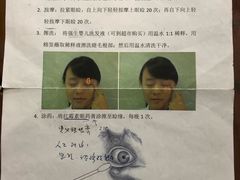 2. 按摩：拉紧眼睑，自上向下轻轻按摩上眼睑 20 次；再自下向上轻
轻按摩下眼睑 20 次。
3. 擦洗：将强生婴儿洗发液（可到超市购买）用温水 1:1 稀释，用
棉签蘸取稀释液擦洗睫毛根部，然后用温水清洗干净。
4. 涂药：将红霉素眼药膏涂至睑缘，每晚 1 次。